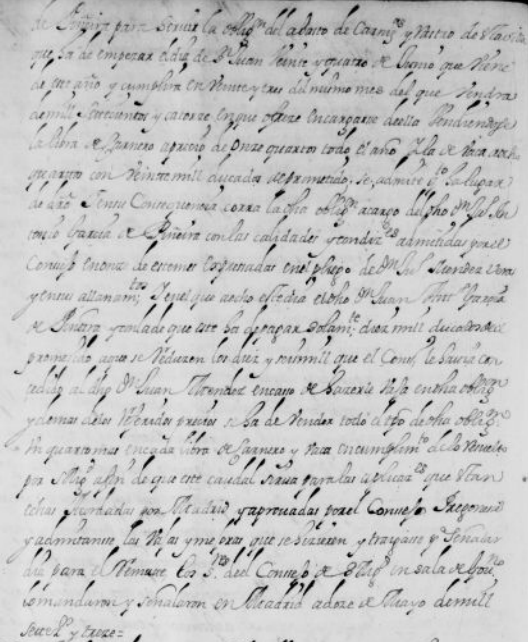 de Piñeira para servir la oblig.on del abasto de Carnes y Rastro de
que ha de empezar el dia de S.n Juan Veinte y quatro de Junio que viene
de este año y cumplira en Veinte y tres del mismo mes del que vendra
de mill Setecientos y catorze en que ofreze encargarse de ella Vendiendose
la libra de Carnero a precio de Onze quartos todo el año y la de Vaca
quartos con Veinte mill ducados de prometido; se admite q.to ha lugar
de dro Y en su Consequencia corra la dha oblig.on a cargo del dho D.n Ju.o An
tonio Garcia de Piñeira con las calidades y condiz.es admitidas por el
Consejo en de estas en el pliego de D.n Mendez
y en sus allanam.tos; Y en el que a ocho de este dia el dho D.n Juan Ant.o Garcia
de Piñeira y con la de que este ha de pagar solam.te diez mill ducados de
prometido a que se reduzen los diez y seis mill que el Cons.o le havia con
cedido al dho D.n Juan Mendez en caso de hazerse Vaja en dha oblig.on
y demas de los referidos precios se ha de Vender todo el tpo de dha oblig.on
Un quarto mas en cada libra de Carnero y Vaca en cumplim.to de lo
por Mag.d a fin de que este caudal sirva para las aplicaz.es que estan
echas acordadas por Madrid y aprovadas por el Consejo Y se pregone
y admitanse las Vajas y mejoras que se hizieren y traygase p.a señalar
dia para el Remate. Los S.res del Consejo de Mag.d en sala de Gov.no
lo mandaron y señalaron en Madrid a doze de Mayo de mill
sete.os y treze=